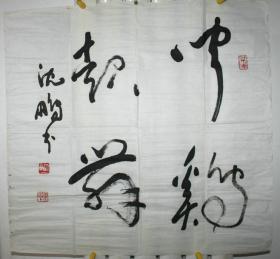 闻鸡
起舞
沈鹏书